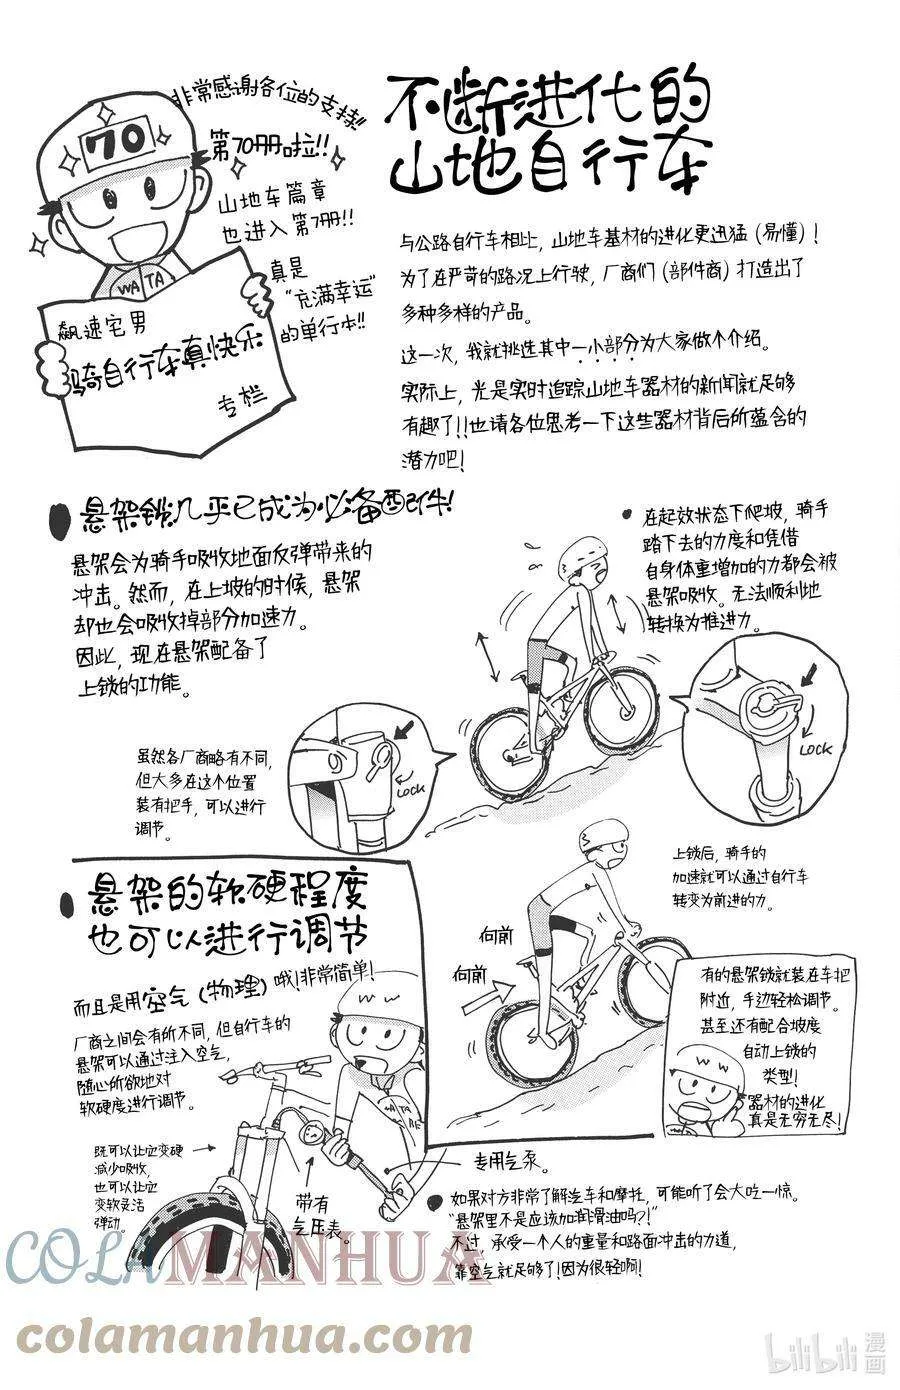 非常感谢各位的支持!!
70
第70册啦!!
山地车篇章
也进入第7册!!
真是
“充满幸运”
的单行本!!
WATA
飙速宅男
骑自行车真快乐
专栏
不断进化的
山地自行车
与公路自行车相比，山地车基材的进化更迅猛（易懂）!
为了在严苛的路况上行驶，厂商们（部件商）打造出了
多种多样的产品。
这一次，我就挑选其中一小部分为大家做个介绍。
实际上，光是实时追踪山地车器材的新闻就足够
有趣了!!也请各位思考一下这些器材背后所蕴含的
潜力吧!
●悬架锁几乎已成为必备配件!
悬架会为骑手吸收地面反弹带来的
冲击。然而，在上坡的时候，悬架
却也会吸收掉部分加速力。
因此，现在悬架配备了
上锁的功能。
●在起效状态下爬坡，骑手
踏下去的力度和凭借
自身体重增加的力都会被
悬架吸收。无法顺利地
转换为推进力。
虽然各厂商略有不同，
但大多在这个位置
装有把手，可以进行
调节。
LOCK
LOCK
上锁后，骑手的
加速就可以通过自行车
转变为前进的力。
向前
向前
●悬架的软硬程度
也可以进行调节
而且是用空气（物理）哦!非常简单!
厂商之间会有所不同，但自行车的
悬架可以通过注入空气，
随心所欲地对
软硬度进行调节。
W W
WATARE
既可以让它变硬
减少吸收，
也可以让它
变软灵活
弹动。
带有
气压表。
专用气泵。
有的悬架锁就装在车把
附近，手边轻松调节。
甚至还有配合坡度
自动上锁的
类型!
器材的进化
真是无穷无尽!
W W
●如果对方非常了解汽车和摩托，可能听了会大吃一惊。
“悬架里不是应该加润滑油吗?!”
不过，承受一个人的重量和路面冲击的力道，
靠空气就足够了!因为很轻啊!
COLAMANHUA
colamanhua.com
bilibili 漫画